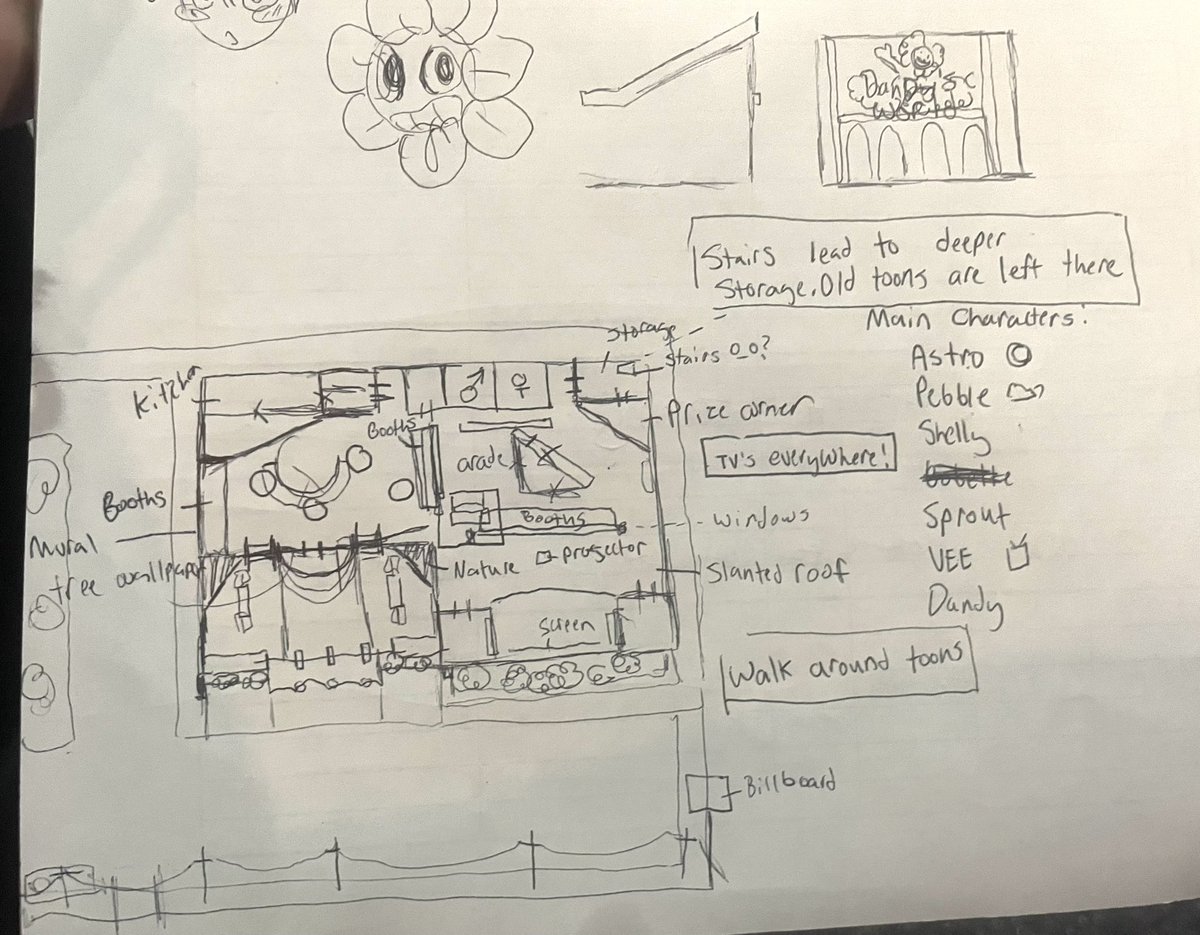 Dandy's
World
Stairs lead to deeper
Storage. Old toons are left there
Main Characters:
Storage
Stairs O_O?
Astro
Kitchen
Pebble
Prize corner
Booths
Shelly
arcade
TV's everywhere!
Booths
Sprout
Booths
windows
Mural
projector
VEE
tree wallpaper
Nature
Slanted roof
Dandy
Screen
Walk around toons
Billboard